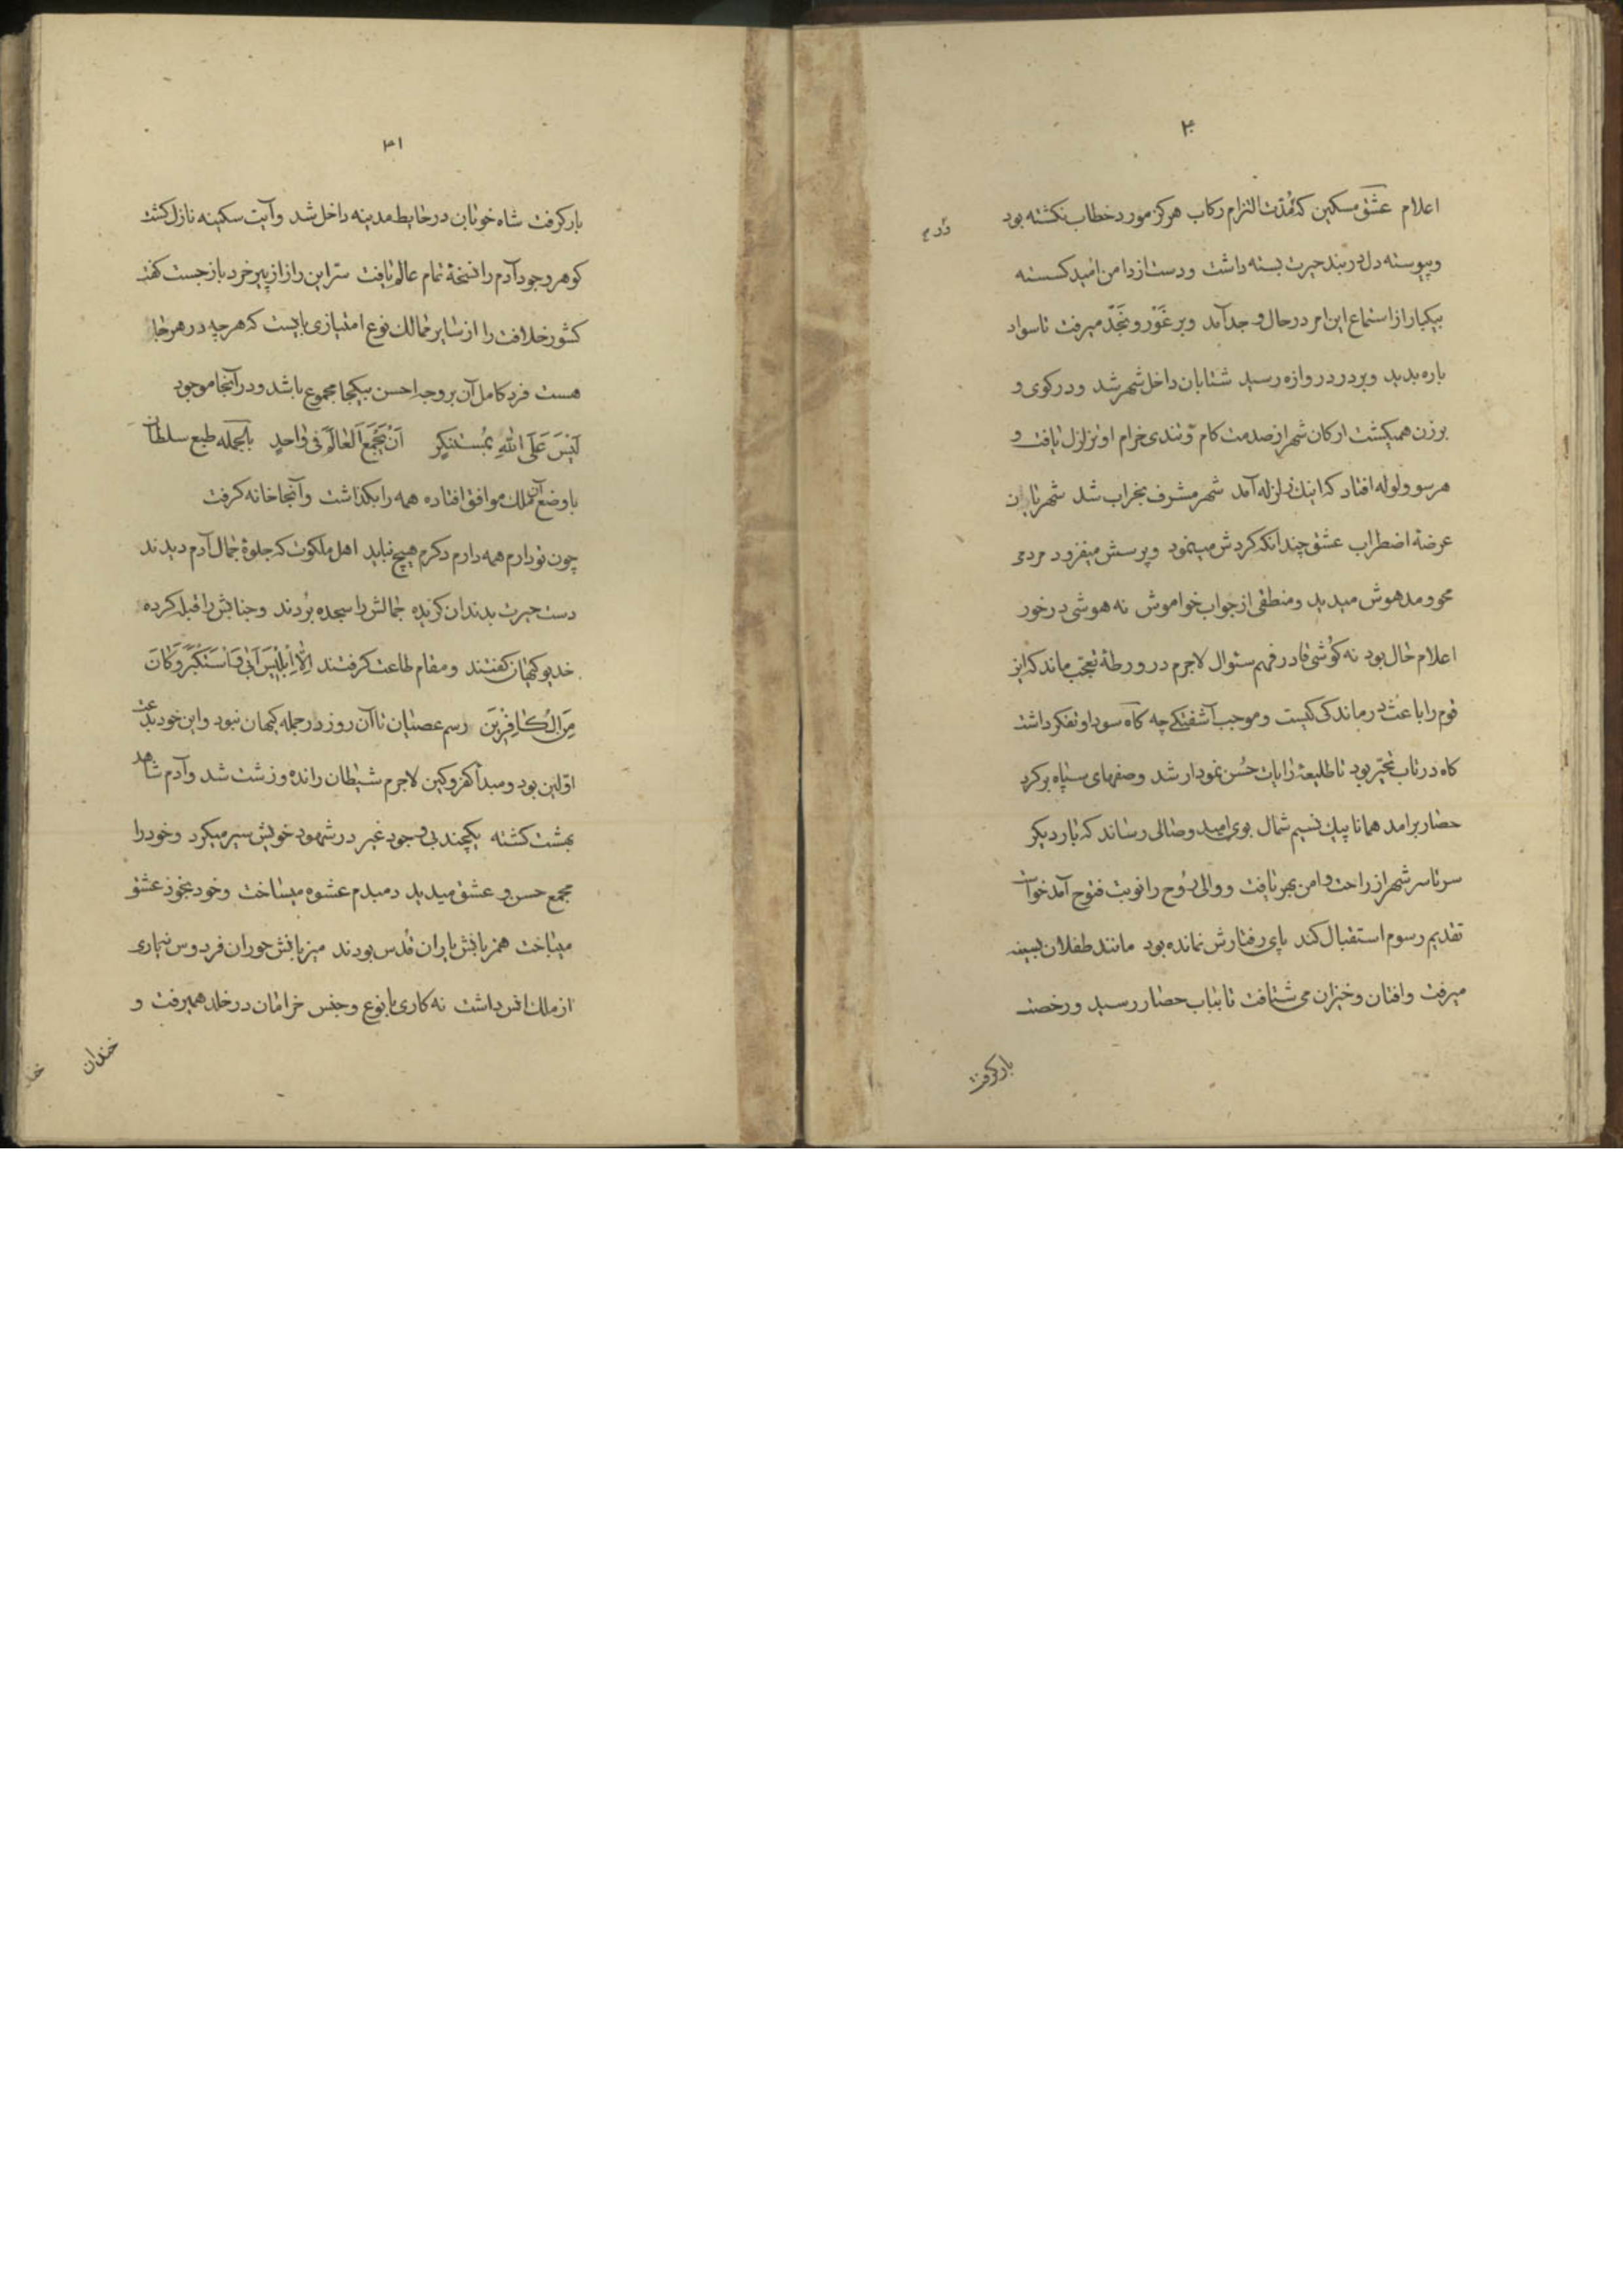 ۳۰
اعلام عشق مسکین که مُدّت التزام رکاب هرگز مورد خطاب نکشته بود
و پیوسته دل در بند حیرت بسته داشت و دست از دامن امید کسسته
بیکبار از استماع این امر در حال وجد آمد و بر غَوْر و نَجْد میرفت تا سواد
باره بدید و بر در دروازه رسید شتابان داخل شهر شد و در کوی و
برزن همیکشت ارکان شهر از صدمت کام و تندی خرام او تزلزل یافت و
هر سو ولوله افتاد که اینک زلزله آمد شهر مشرف بخراب شد شهریاران
عرضهٔ اضطراب عشق چندانکه کردش مینمود و پرسش میفزود مردمی
محو و مدهوش میدید و منطقی از جواب خواموش نه هوشی در خور
اعلام حال بود نه کوشی قادر فهم سئوال لاجرم در ورطهٔ تعجب ماند که این
قوم را باعث درماندکی کیست و موجب آشفتکی چه کاه سودا و تفکر داشت
کاه در تاب تحیّر بود تا طلیعهٔ رایات حُسن نمودار شد و صفهای سپاه بر کرد
حصار برامد همانا پیک نسیم شمال بوی امید وصالی رساند که بار دیکر
سرتاسر شهر از راحت و امن بهر یافت و والی رُوح را نوبت فتوح آمد خواست
تقدیم رسوم استقبال کند پای رفتارش نمانده بود مانند طفلان بسینه
میرفت و افتان و خیزان می شتافت تا بباب حصار رسید و رخصت
بار کرفت
۳۱
بار کرفت شاه خوبان در حایط مدینه داخل شد و آیت سکینه نازل کشت
کوهر وجود آدم را نسخهٔ تمام عالم یافت سرّ این راز از پیر خرد باز جست کفت
کشور خلافت را از سایر ممالک نوع امتیازی بایست که هر چه در هر جا
هست فرد کامل آن بر وجه احسن بیکجا مجموع باشد و در آنجا موجود
لَیْسَ عَلَی اللّٰهِ بِمُسْتَنکِرٍ اَنْ یَجْمَعَ الْعٰالَمَ فی وٰاحِدٍ بالجمله طبع سلطان
با وضع آن ملک موافق افتاده همه را بکذاشت و آنجا خانه کرفت
چون تو دارم همه دارم دکرم هیچ نباید اهل ملکوت که جلوهٔ جمال آدم دیدند
دست حیرت بدندان کزیده جمالش را سجده بُردند و جنابش را قبله کرده
خدیو کیهان کفتند و مقام طاعت کرفتند اِلّٰا اِبْلیْسَ اَبٰی وَ اسْتَکْبَرَ وَ کٰانَ
مِنَ الْکٰافِرینَ رسم عصیان تا آن روز در جمله کیهان نبود و این خود بدعت
اوّلین بود و مبدأ کفر و کین لاجرم شیطان رانده و زشت شد و آدم شاهد
بهشت کشته یکچند بی وجود غیر در شهود خویش سیر میکرد و خود را
مجمع حسن و عشق میدید دمبدم عشوه میساخت و خود بخود عشق
میباخت همزبانش یاران قُدس بودند میزبانش حوران فردوس نه یاری
از ملک انس داشت نه کاری با نوع و جنس خرامان در خلد همیرفت و
خندان